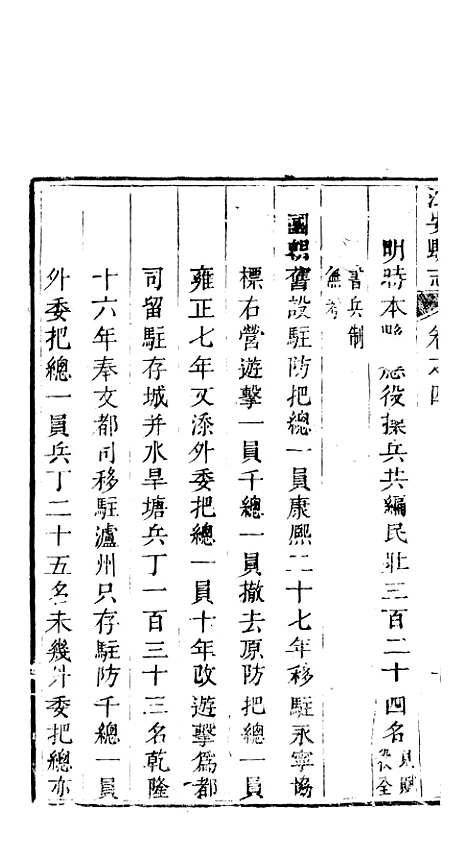 江安縣志 卷之四
明時本縣 應役操兵共編民壯三百二十四名 見賦役全
書兵制無考
國朝舊設駐防把總一員康熙二十七年移駐永寧協
標右營遊擊一員千總一員撤去原防把總一員
雍正七年又添外委把總一員十年改遊擊為都
司留駐存城并水旱塘兵丁一百三十三名乾隆
十六年奉文都司移駐瀘州只存駐防千總一員
外委把總一員兵丁二十五名未幾外委把總亦